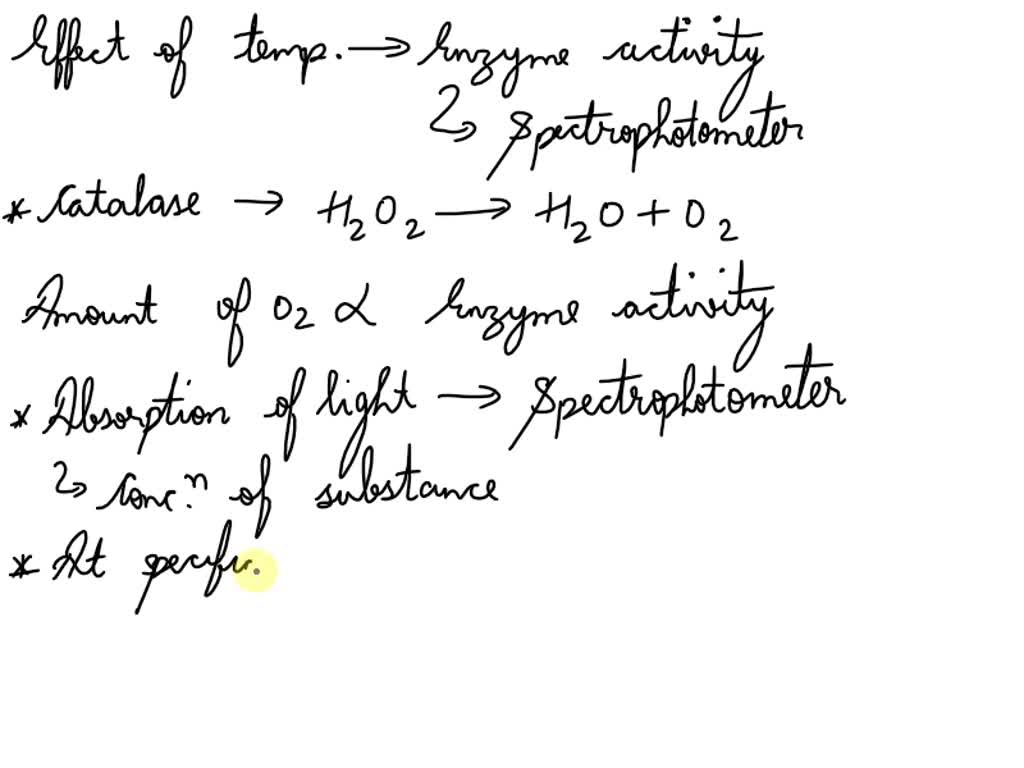 Effect of temp. → Enzyme activity
↳ Spectrophotometer
* Catalase → H₂O₂ → H₂O + O₂
Amount of O₂ ∝ Enzyme activity
* Absorption of light → Spectrophotometer
↳ Concⁿ. of substance
* At specific